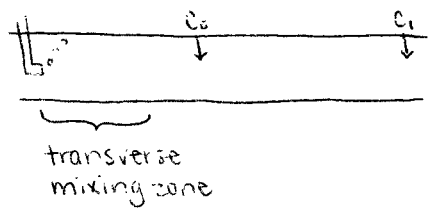 C₀ C₁
transverse
mixing zone